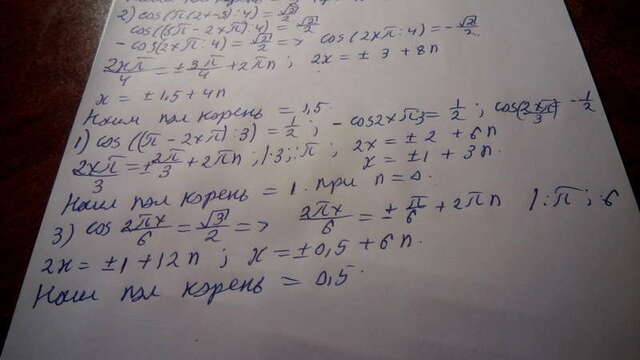 2) cos(π(2x-8):4) = √2/2
cos(8π - 2xπ):4) = √2/2
-cos(2xπ:4) = √2/2 => cos(2xπ:4) = -√2/2
2xπ/4 = ±3π/4 + 2πn; 2x = ±3 + 8n
x = ±1,5 + 4n
Наим пол корень = 1,5.
1) cos((π - 2xπ):3) = 1/2; -cos2xπ3 = 1/2; cos(2xπ)/3 -1/2
2xπ/3 = ±2π/3 + 2πn; |·3;:π; 2x = ±2 + 6n
x = ±1 + 3n.
Наим пол корень = 1. при n=0.
3) cos 2πx/6 = √3/2 => 2πx/6 = ±π/6 + 2πn |:π; 6
2x = ±1 + 12n; x = ±0,5 + 6n.
Наим пол корень = 0,5.